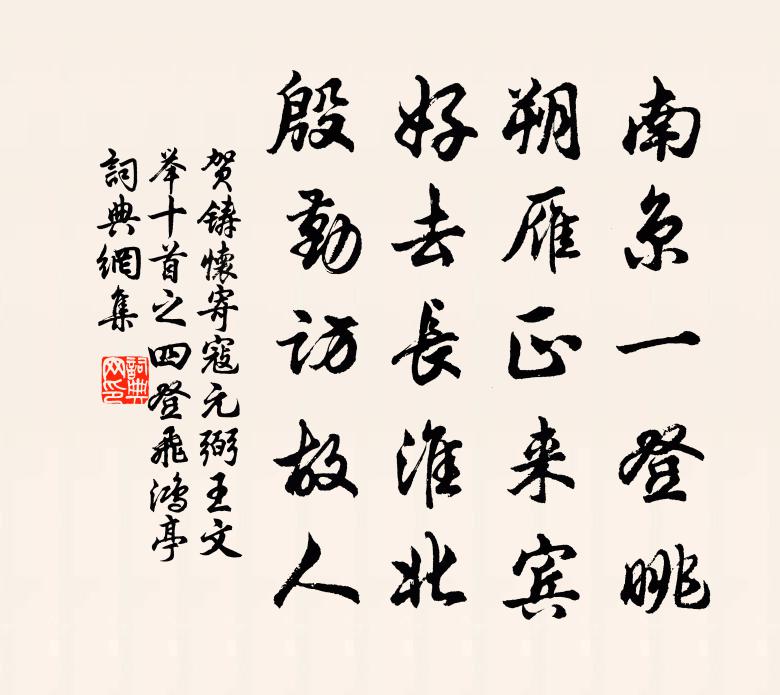 南京一登眺
朔雁正来宾
好去長淮北
殷勤访故人
贺鑄懷寄寇元弼王文
举十首之四登飛鴻亭
詞典網集
詞典网印